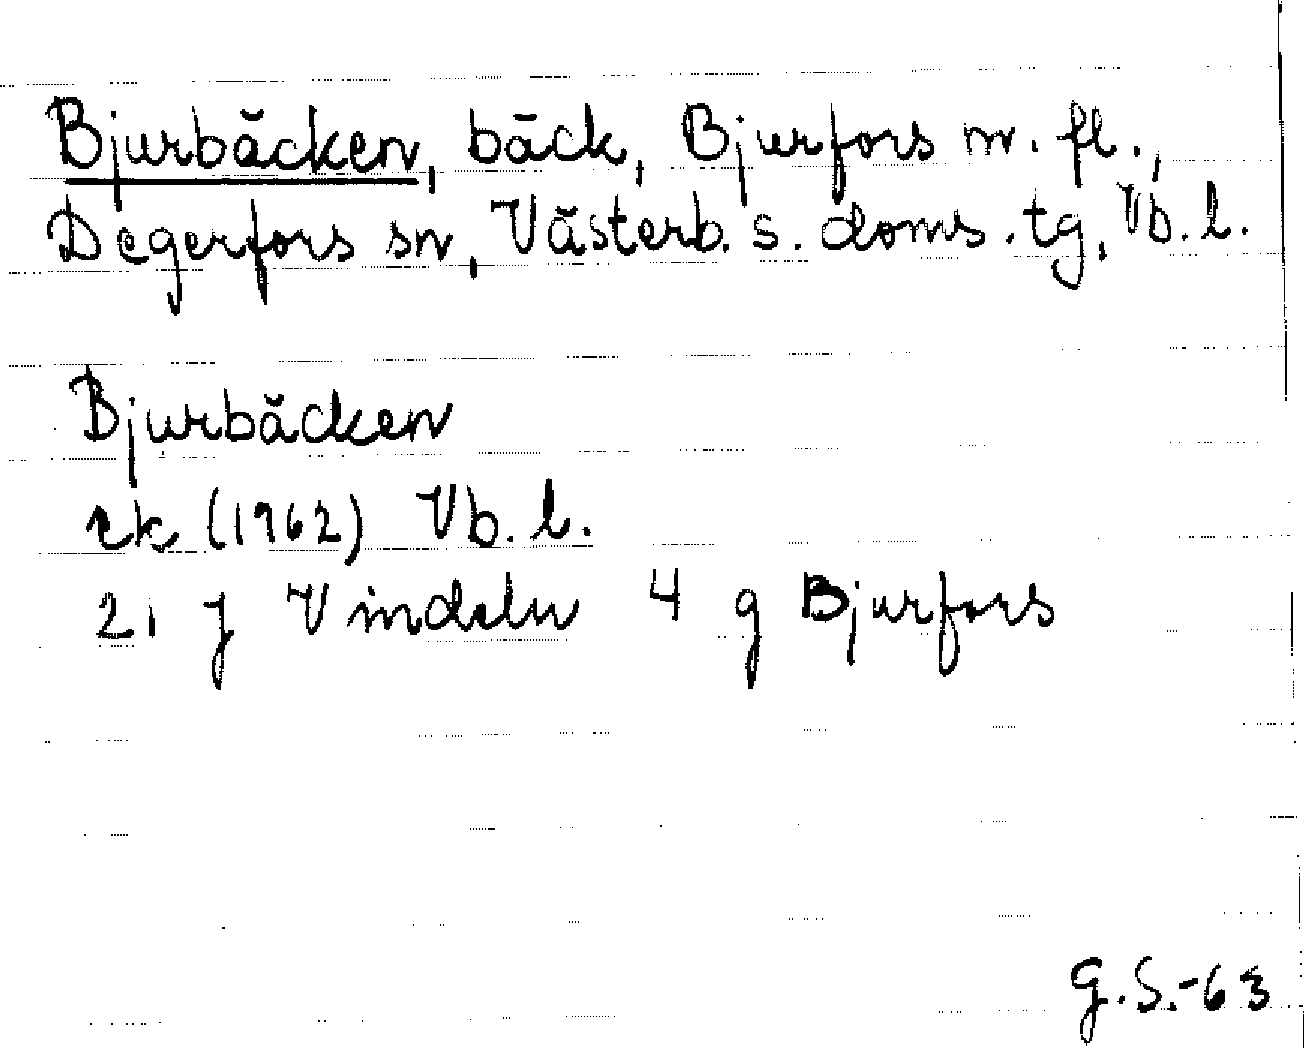 Bjurbäcken, bäck, Bjurfors m. fl.,
Degerfors sn, Västerb. s. doms. tg, Vb. l.
Bjurbäcken
rk (1962) Vb. l.
21 J Vindeln 4 g Bjurfors
G.S.-63